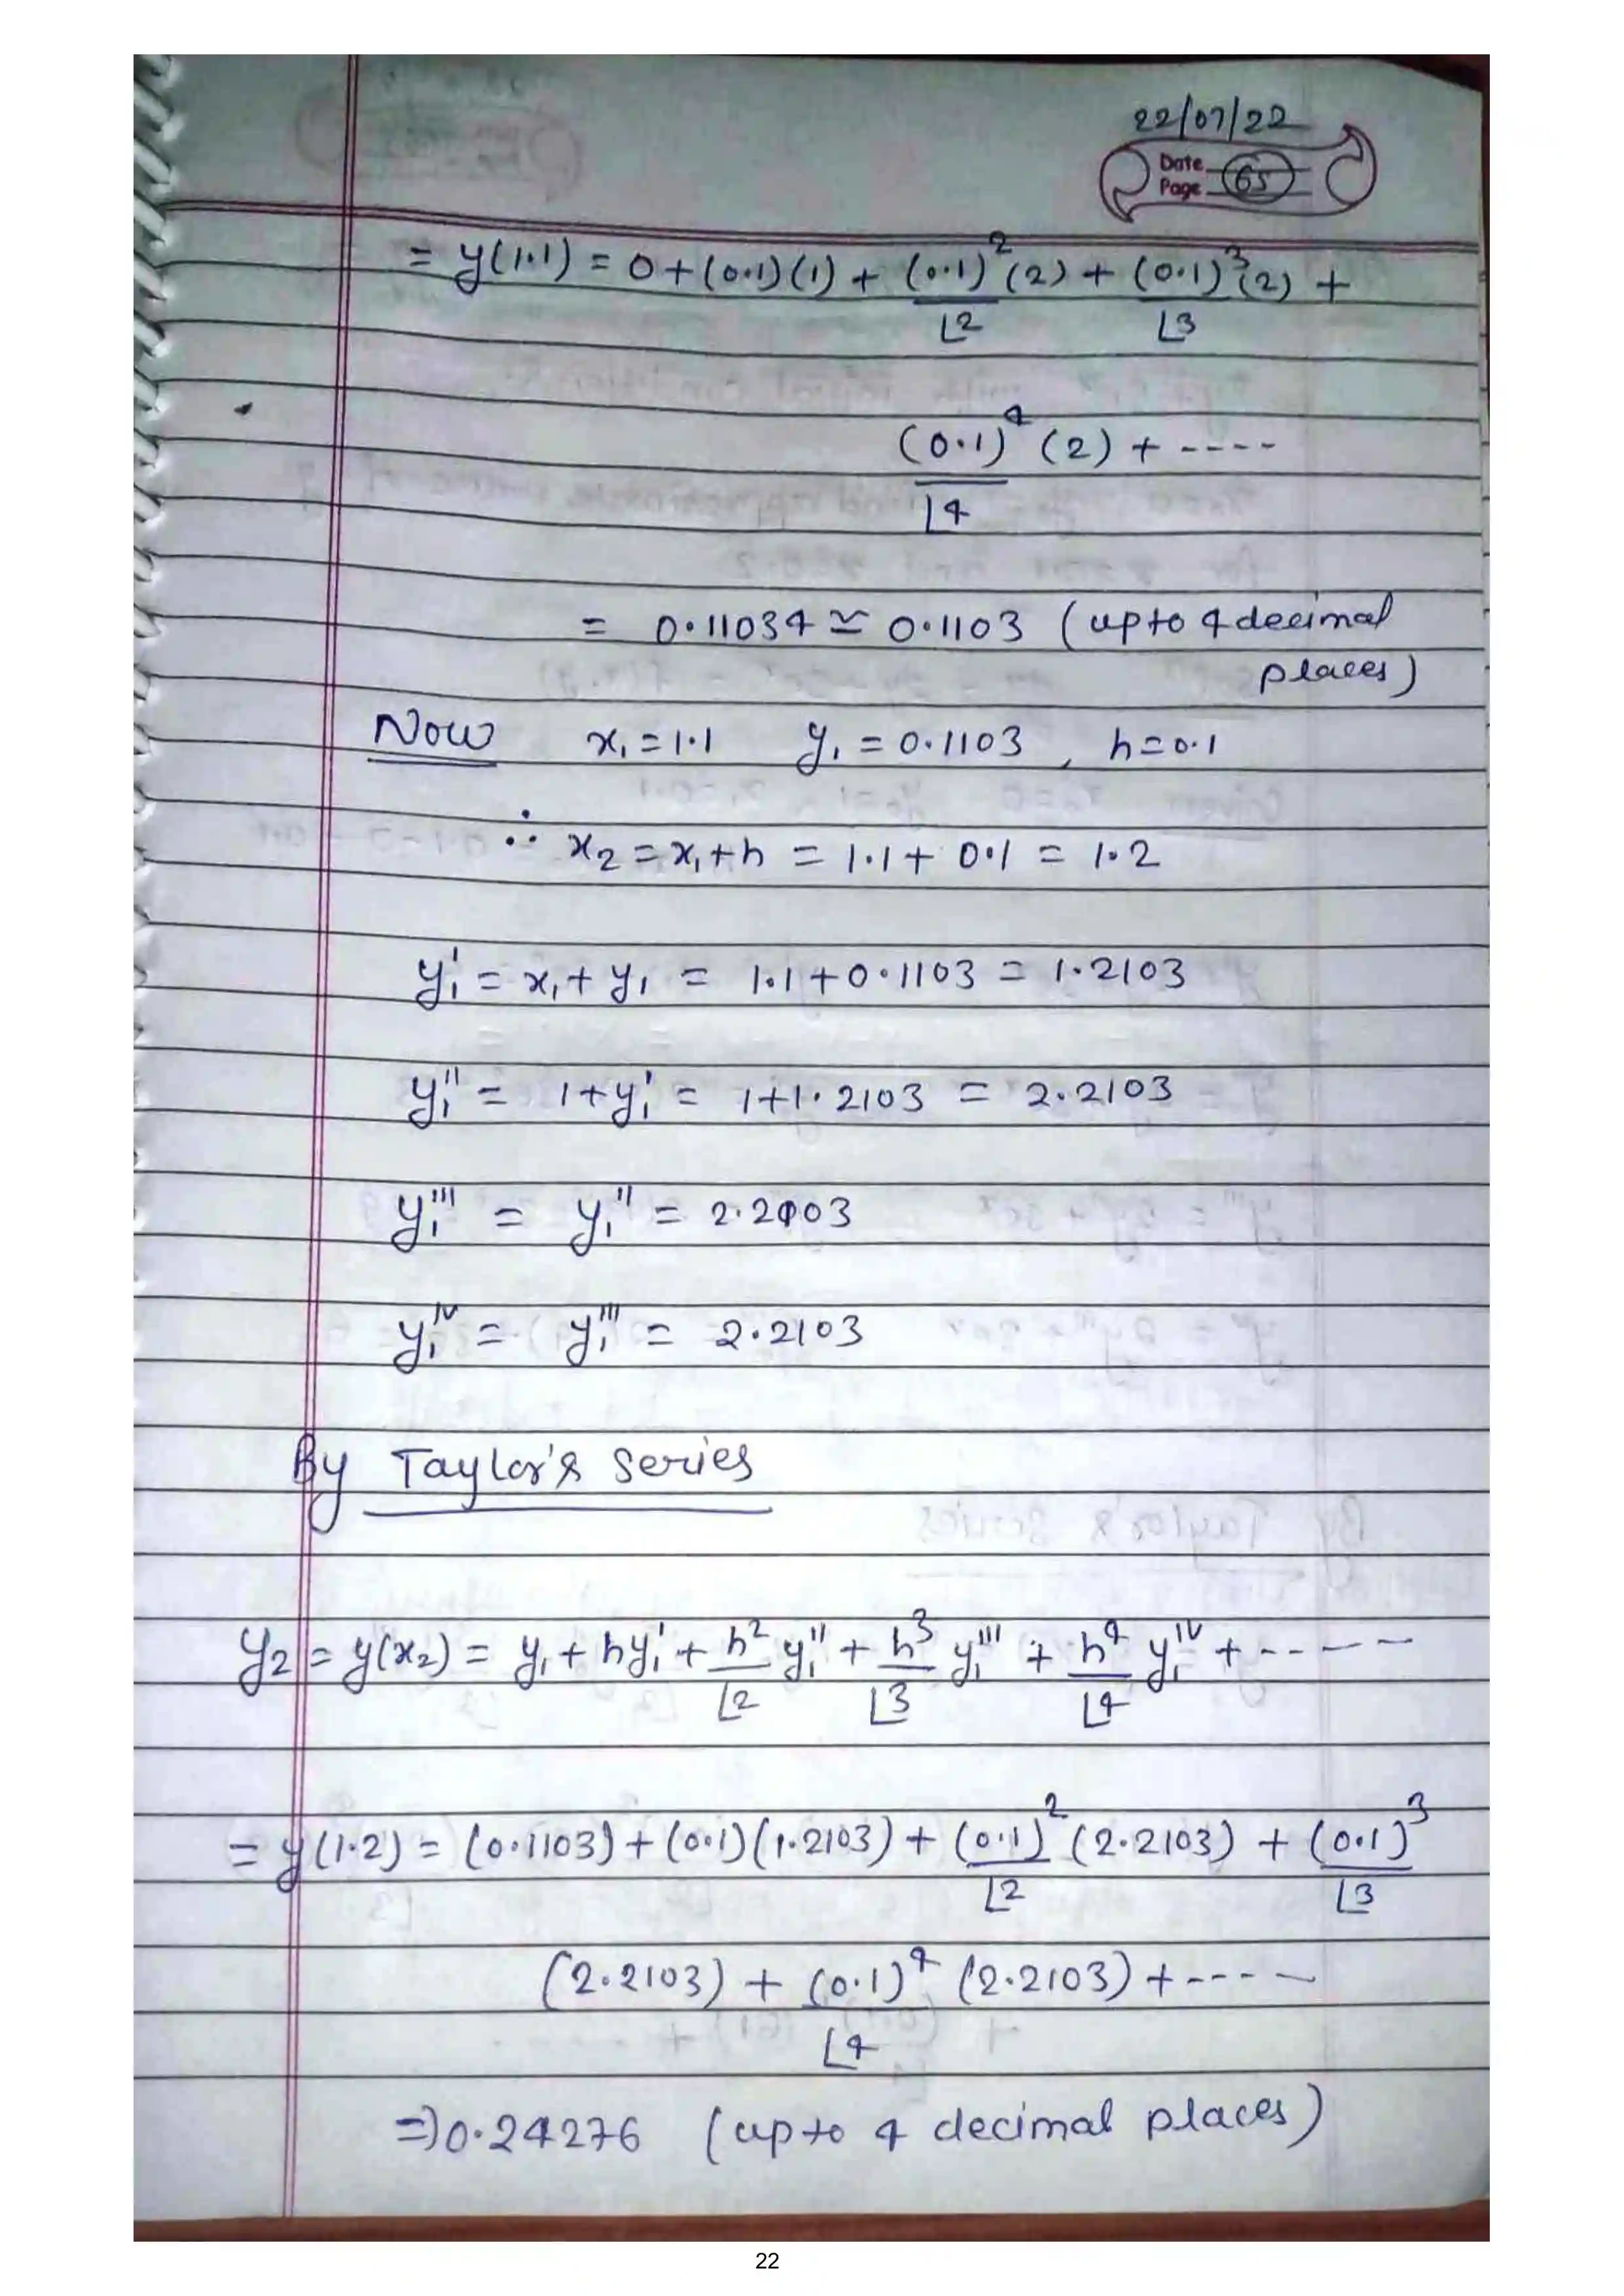 22/07/22
Date
Page 65
= y(1.1) = 0 + (0.1)(1) + (0.1)²/⌊2 (2) + (0.1)³/⌊3 (2) +
(0.1)⁴/⌊4 (2) + ----
= 0.11034 ≃ 0.1103 (upto 4 decimal
places)
Now x₁ = 1.1 y₁ = 0.1103, h = 0.1
∴ x₂ = x₁ + h = 1.1 + 0.1 = 1.2
y₁' = x₁ + y₁ = 1.1 + 0.1103 = 1.2103
y₁'' = 1 + y₁' = 1 + 1.2103 = 2.2103
y₁''' = y₁'' = 2.2103
y₁ⁱᵛ = y₁''' = 2.2103
By Taylor's Series
y₂ = y(x₂) = y₁ + hy₁' + h²/⌊2 y₁'' + h³/⌊3 y₁''' + h⁴/⌊4 y₁ⁱᵛ + -----
= y(1.2) = (0.1103) + (0.1)(1.2103) + (0.1)²/⌊2 (2.2103) + (0.1)³/⌊3
(2.2103) + (0.1)⁴/⌊4 (2.2103) + ----
⇒ 0.24276 (upto 4 decimal places)
22